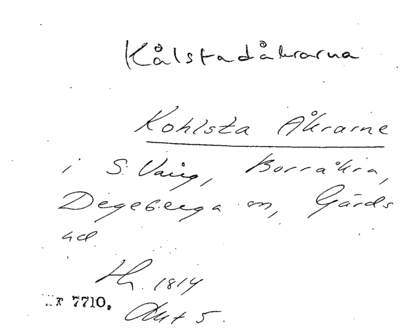 Kålstadåkrarna
Kohlsta Åkrarne
i S. Vång, Borråkra,
Degeberga sn, Gärds
hd
Lh. 1814
Akt 5.
NR 7710.